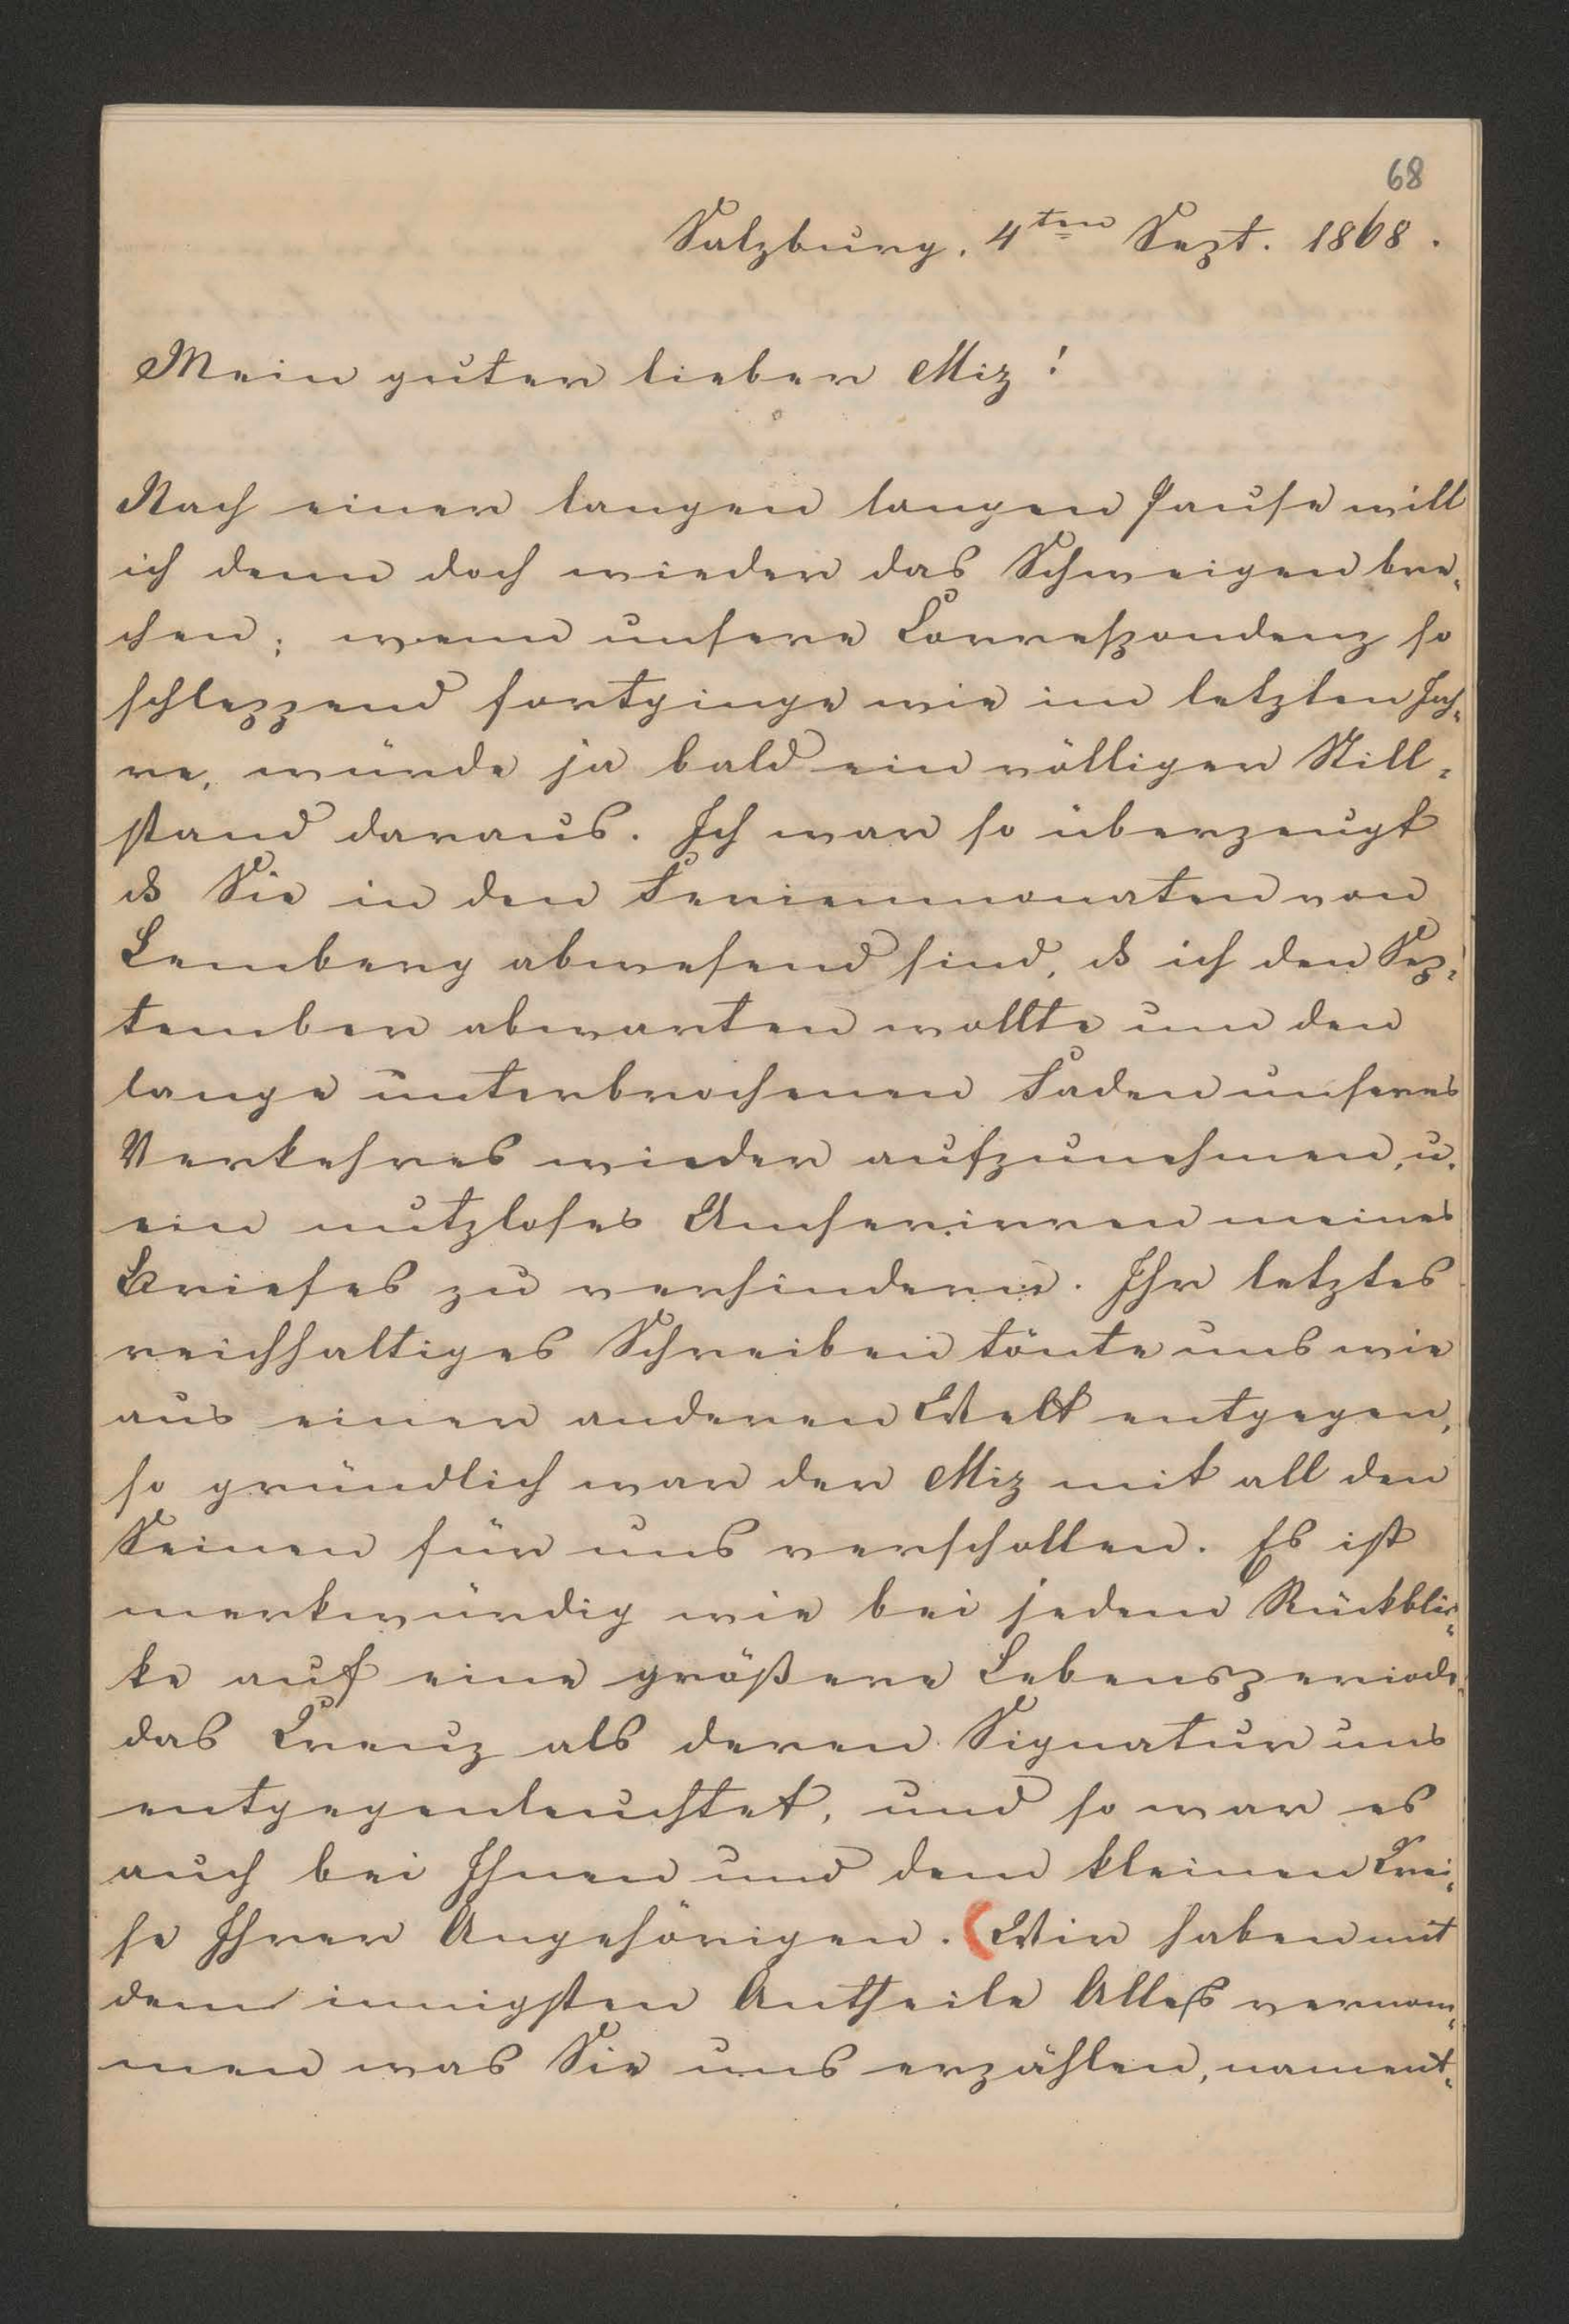 68
Salzburg, 4ten Sept. 1868.
Mein guter lieber Miz!
Nach einer langen langen Pause will
ich denn doch wieder das Schweigen bre-
chen; wenn unsere Correspondenz so
schleppend fortginge wie im letzten Jah-
re, würde ja bald ein völliger Still-
stand daraus. Ich war so überzeugt
dß Sie in den Ferienmonaten von
Lemberg abwesend sind, dß ich den Sep-
tember abwarten wollte um den
lange unterbrochenen Faden unseres
Verkehres wieder aufzunehmen, u.
ein nutzloses Umherirren meines
Briefes zu verhindern. Ihr letztes
reichhaltiges Schreiben tönte uns wie
aus einer anderen Welt entgegen,
so gründlich war der Miz mit all den
Seinen für uns verschollen. Es ist
merkwürdig wie bei jedem Rückblic-
ke auf eine größere Lebensperiode
das Creuz als deren Signatur uns
entgegenleuchtet, und so war es
auch bei Ihnen und dem kleinen Krei-
se Ihrer Angehörigen. (Wir haben mit
dem innigsten Antheile Alles vernom-
men was Sie uns erzählen, nament-